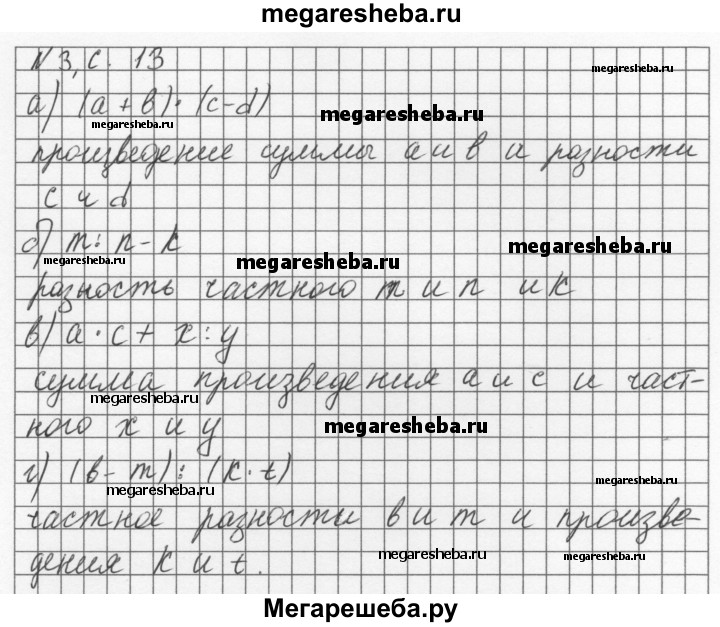 megaresheba.ru
N 3, с. 13
megaresheba.ru
а) (a + b) · (c – d)
megaresheba.ru
megaresheba.ru
произведение суммы a и b и разности
c и d
б) m : n – k
megaresheba.ru
megaresheba.ru
megaresheba.ru
разность частного m и n и k
в) a · c + x : y
сумма произведения a и c и част-
megaresheba.ru
ного x и y
megaresheba.ru
г) (b – m) : (k · t)
megaresheba.ru
megaresheba.ru
частное разности b и m и произве-
дения k и t.
megaresheba.ru
megaresheba.ru
Мегарешеба.ру